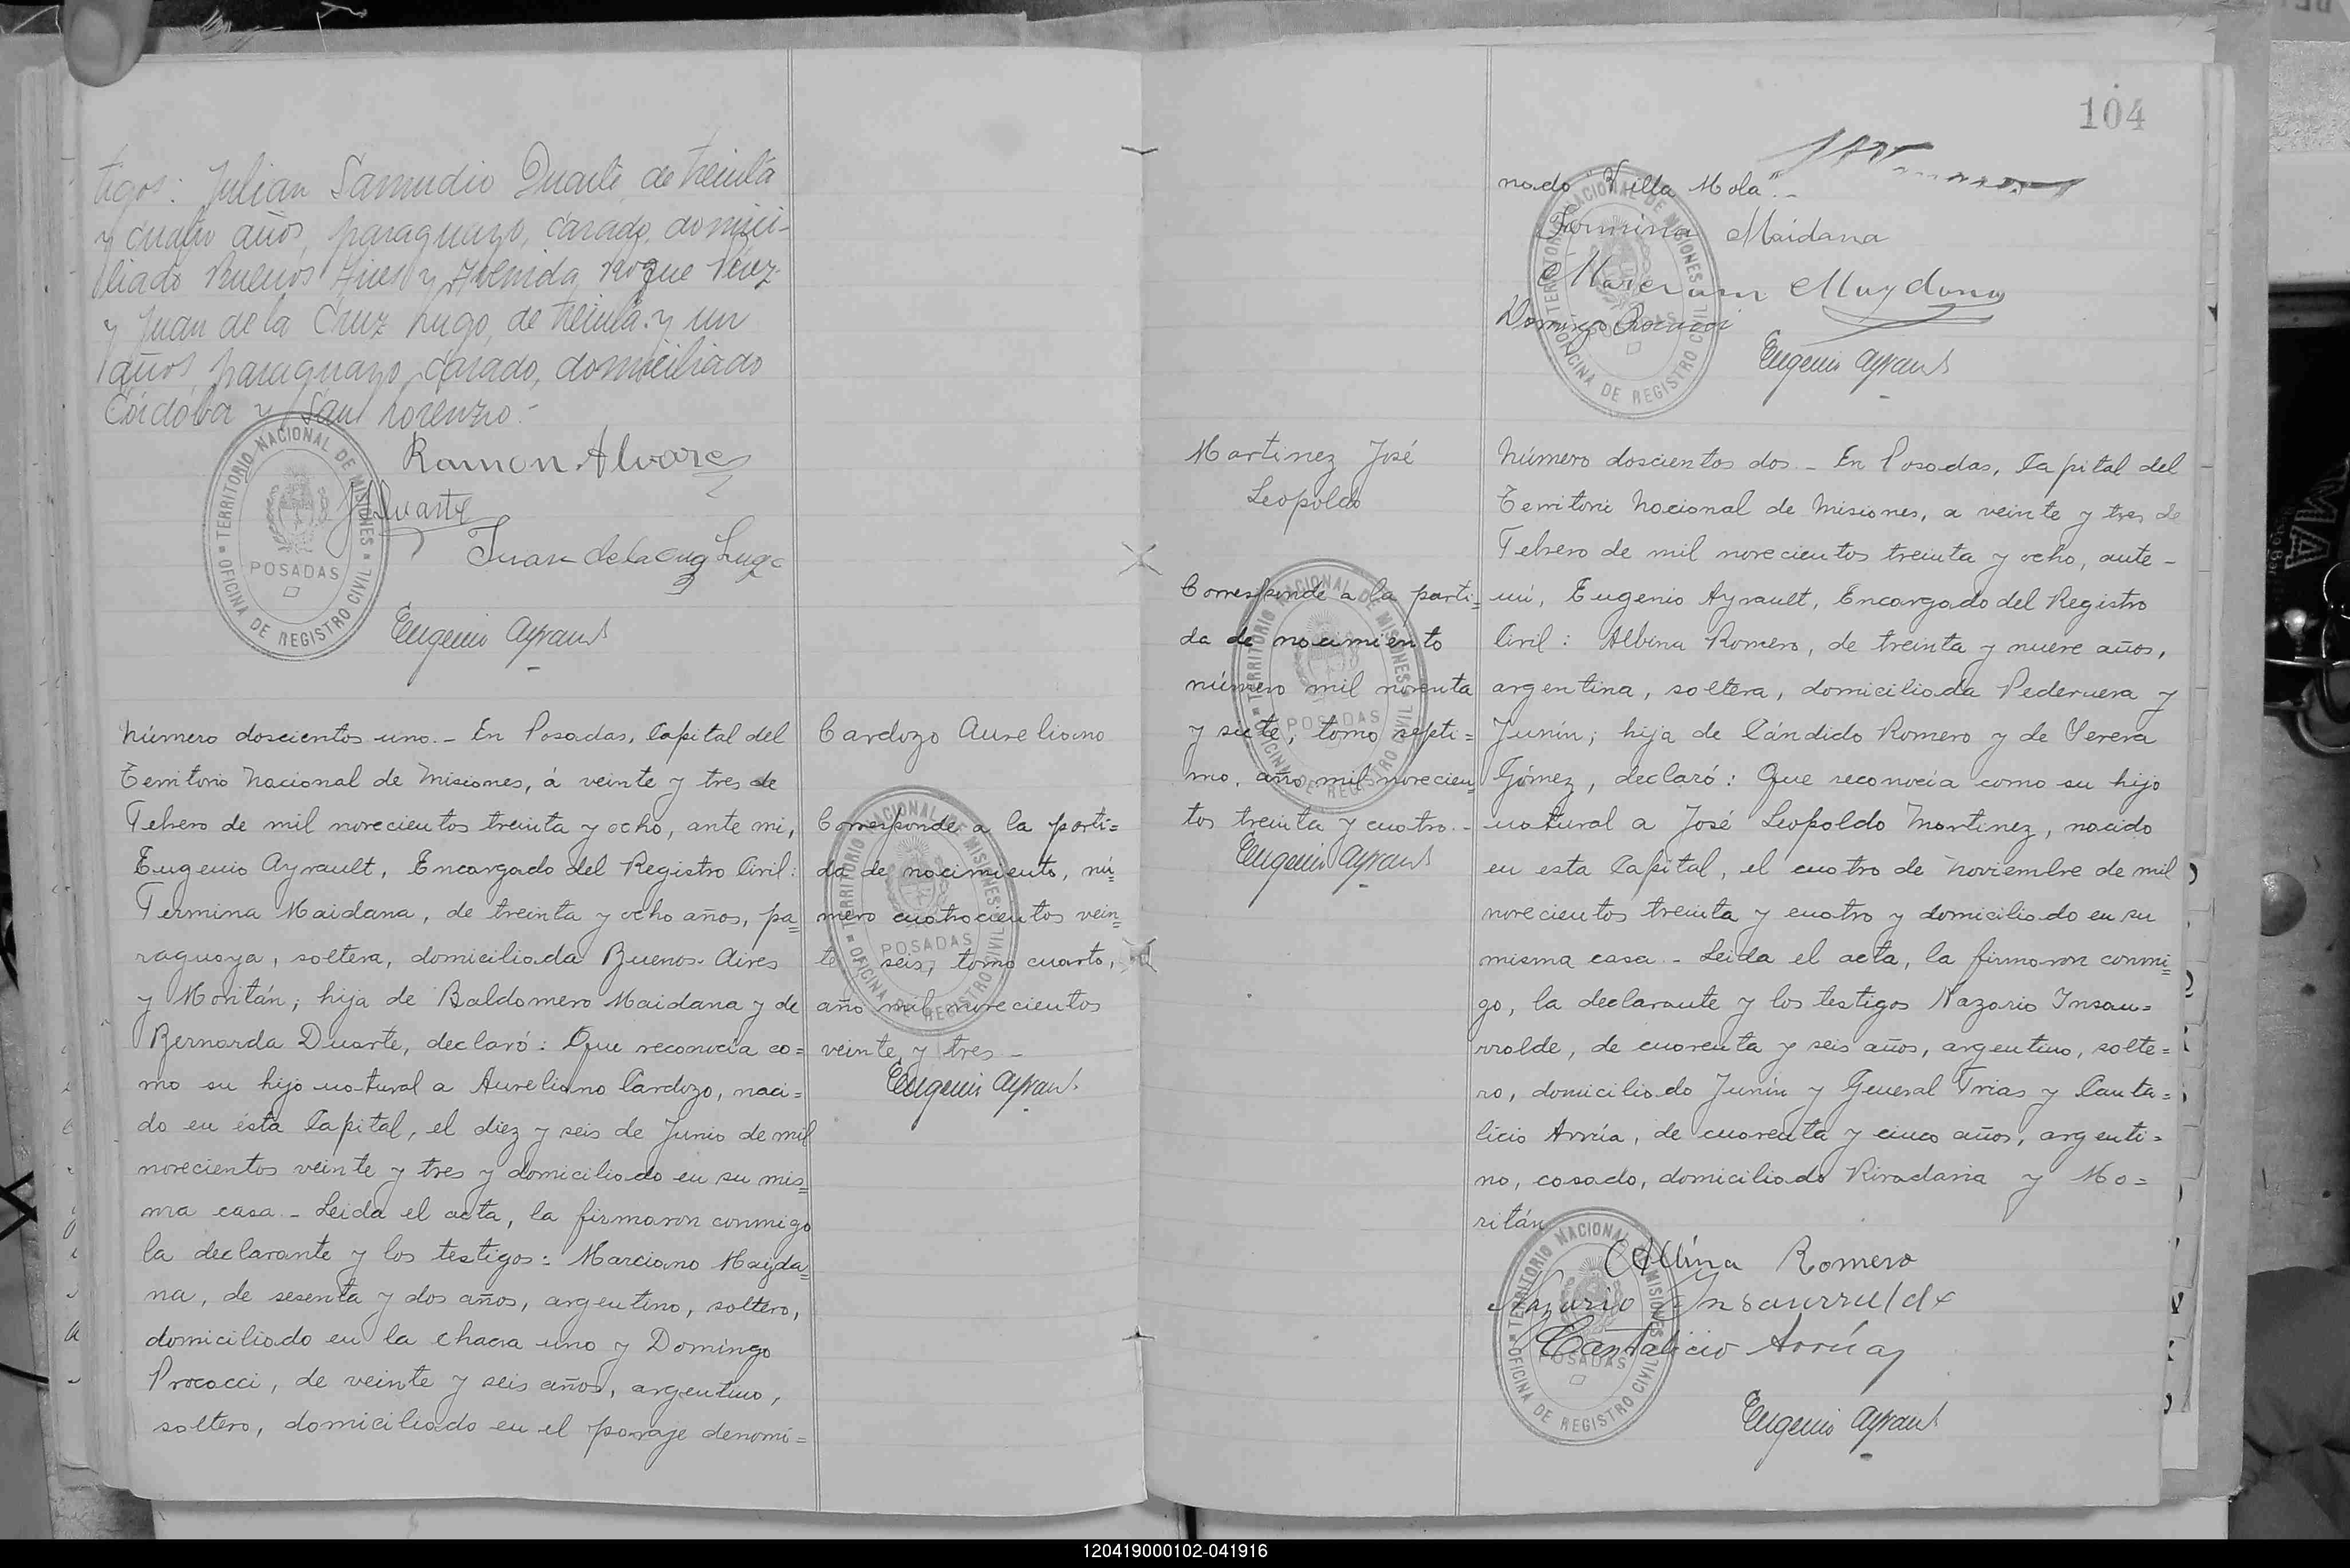 tigos: Julian Samudio Duarte, de treinta
y cuatro años, paraguayo, casado, domici-
liado Buenos Aires y Avenida Roque Pérez
y Juan de la Cruz Lugo, de treinta y un
años, paraguayo, casado, domiciliado
Córdoba y San Lorenzo.-
Ramon Alvarez
JSDuarte
Juan de la Cruz Lugo
Eugenio Ayrault
TERRITORIO NACIONAL DE MISIONES
POSADAS
OFICINA DE REGISTRO CIVIL
Número doscientos uno.- En Posadas, Capital del
Territorio Nacional de Misiones, á veinte y tres de
Febrero de mil novecientos treinta y ocho, ante mi,
Eugenio Ayrault, Encargado del Registro Civil:
Fermina Maidana, de treinta y ocho años, pa=
raguaya, soltera, domiciliada Buenos Aires
y Moritán; hija de Baldomero Maidana y de
Bernarda Duarte, declaró: Que reconocia co=
mo su hijo natural a Aureliano Cardozo, naci=
do en ésta Capital, el diez y seis de Junio de mil
novecientos veinte y tres y domiciliado en su mis=
ma casa.- Leida el acta, la firmaron conmigo
la declarante y los testigos: Marciano Mayda=
na, de sesenta y dos años, argentino, soltero,
domiciliado en la chacra uno y Domingo
Procacci, de veinte y seis años, argentino,
soltero, domiciliado en el paraje denomi=
Cardozo Aureliano
Corresponde a la parti=
da de nacimiento, nú=
mero cuatrocientos vein=
te seis, tomo cuarto,
año mil novecientos
veinte y tres.-
Eugenio Ayrault
TERRITORIO NACIONAL DE MISIONES
POSADAS
OFICINA DE REGISTRO CIVIL
104
nado "Villa Mola".-
Fermina Maidana
Marciano Maydana
Domingo Procacci
Eugenio Ayrault
TERRITORIO NACIONAL DE MISIONES
POSADAS
OFICINA DE REGISTRO CIVIL
Martinez José
Leopoldo
Corresponde a la parti=
da de nacimiento
número mil noventa
y siete, tomo septi=
mo, año mil novecien=
tos treinta y cuatro.-
Eugenio Ayrault
TERRITORIO NACIONAL DE MISIONES
POSADAS
OFICINA DE REGISTRO CIVIL
Número doscientos dos.- En Posadas, Capital del
Territorio Nacional de Misiones, a veinte y tres de
Febrero de mil novecientos treinta y ocho, ante-
mi, Eugenio Ayrault, Encargado del Registro
Civil: Albina Romero, de treinta y nueve años,
argentina, soltera, domiciliada Pedernera y
Junín; hija de Cándido Romero y de Serera
Gómez, declaró: Que reconocia como su hijo
natural a José Leopoldo Martinez, nacido
en esta Capital, el cuatro de Noviembre de mil
novecientos treinta y cuatro y domiciliado en su
misma casa.- Leida el acta, la firmaron conmi=
go, la declarante y los testigos Nazario Insau=
rralde, de cuarenta y seis años, argentino, solte=
ro, domiciliado Junín y General Frias y Canta=
licio Arrúa, de cuarenta y cinco años, argenti=
no, casado, domiciliado Rivadavia y Mo=
ritán
Albina Romero
Nazario Insaurralde
Cantalicio Arrúa
Eugenio Ayrault
TERRITORIO NACIONAL DE MISIONES
POSADAS
OFICINA DE REGISTRO CIVIL
120419000102-041916